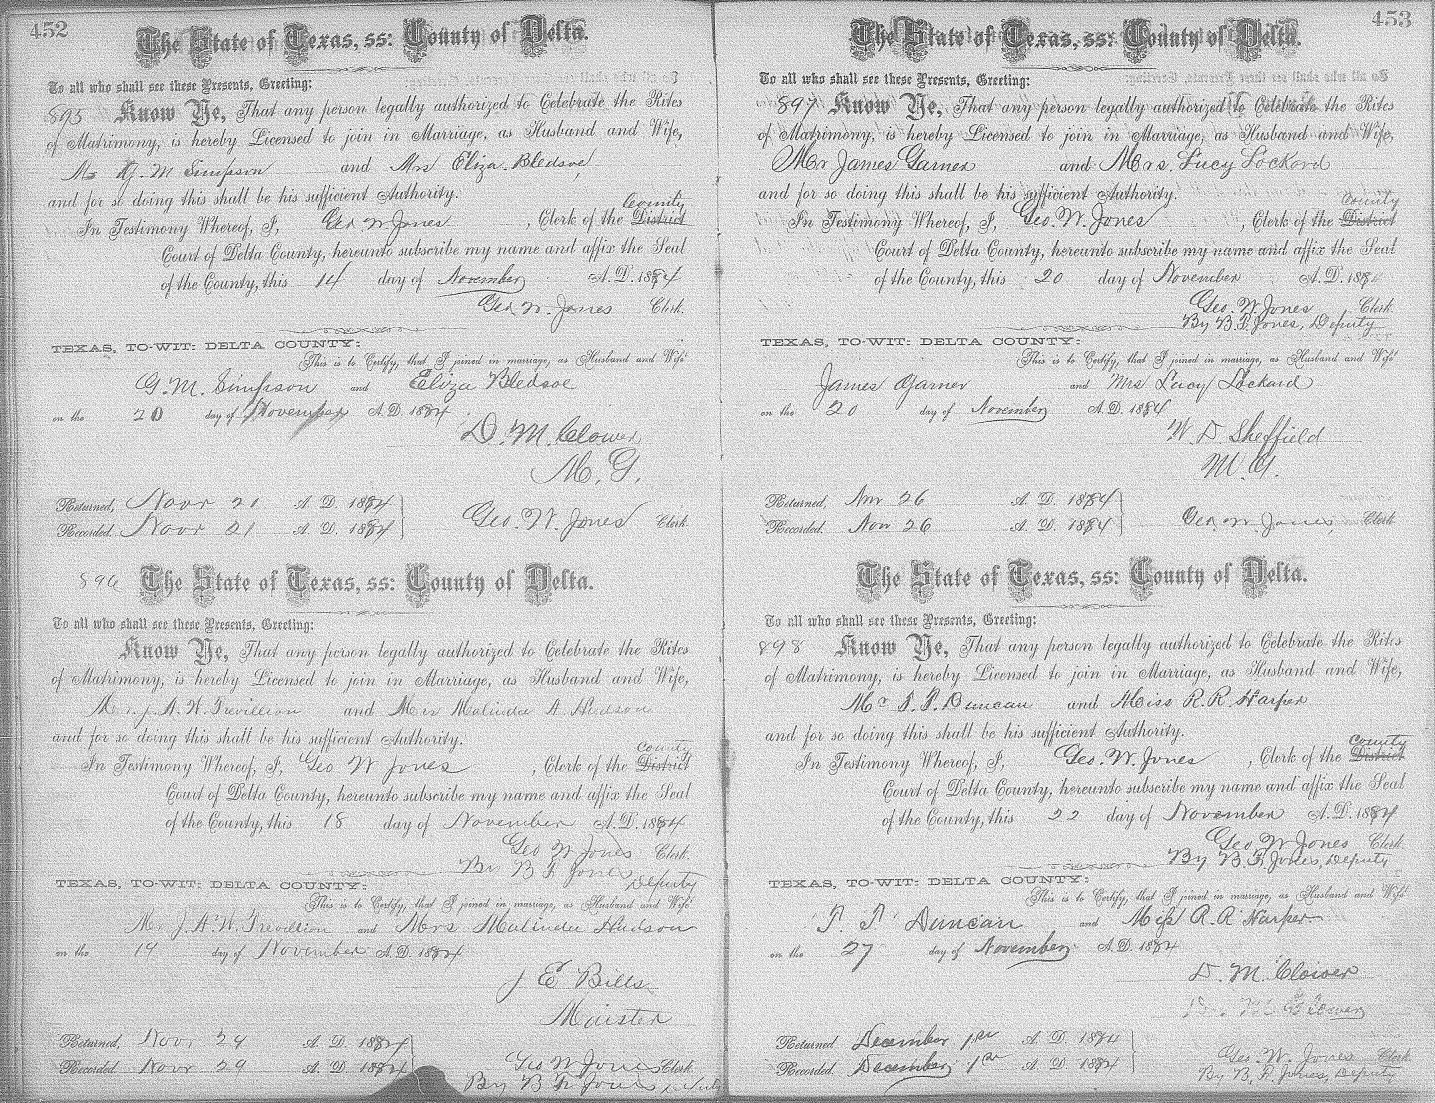 452
The State of Texas, ss: County of Delta.
To all who shall see these Presents, Greeting:
895 Know Ye, That any person legally authorized to Celebrate the Rites
of Matrimony, is hereby Licensed to join in Marriage, as Husband and Wife,
Mr G. M Simpson and Mrs Eliza Bledsoe,
and for so doing this shall be his sufficient Authority.
County
In Testimony Whereof, I, Geo W Jones, Clerk of the District
Court of Delta County, hereunto subscribe my name and affix the Seal
of the County, this 14 day of November A. D. 1884
Geo W. Jones Clerk.
TEXAS, TO-WIT: DELTA COUNTY:
This is to Certify, that I joined in marriage, as Husband and Wife
G. M. Simpson and Eliza Bledsoe
on the 20 day of November A. D. 1884
D. M. Clower
M. G.
Returned, Novr 21 A. D. 1884
Recorded. Novr 21 A. D. 1884
Geo. W. Jones Clerk
896 The State of Texas, ss: County of Delta.
To all who shall see these Presents, Greeting:
Know Ye, That any person legally authorized to Celebrate the Rites
of Matrimony, is hereby Licensed to join in Marriage, as Husband and Wife,
Mr J. A. W. Trevillion and Mrs Malinda A Hudson
and for so doing this shall be his sufficient Authority.
County
In Testimony Whereof, I, Geo W Jones, Clerk of the District
Court of Delta County, hereunto subscribe my name and affix the Seal
of the County, this 18 day of November A. D. 1884
Geo W Jones Clerk.
By B F Jones Deputy
TEXAS, TO-WIT: DELTA COUNTY:
This is to Certify, that I joined in marriage, as Husband and Wife
Mr J. A. W. Trevillion and Mrs Malinda Hudson
on the 19 day of November A. D. 1884
J E Bills
Minister
Returned, Novr 29 A. D. 1884
Recorded Novr 29 A. D. 1884
Geo W Jones Clerk
By B F Jones Deputy
453
The State of Texas, ss: County of Delta.
To all who shall see these Presents, Greeting:
897 Know Ye, That any person legally authorized to Celebrate the Rites
of Matrimony, is hereby Licensed to join in Marriage, as Husband and Wife,
Mr James Garner and Mrs. Lucy Lockard
and for so doing this shall be his sufficient Authority.
County
In Testimony Whereof, I, Geo. W. Jones, Clerk of the District
Court of Delta County, hereunto subscribe my name and affix the Seal
of the County, this 20 day of November A. D. 1884
Geo. W. Jones, Clerk.
By B. F. Jones, Deputy
TEXAS, TO-WIT: DELTA COUNTY:
This is to Certify, that I joined in marriage, as Husband and Wife
James Garner and Mrs Lucy Lockard
on the 20 day of November A. D. 1884
W. D. Sheffield
M. G.
Returned, Nov 26 A. D. 1884
Recorded. Nov 26 A. D. 1884
Geo. W. Jones, Clerk
The State of Texas, ss: County of Delta.
To all who shall see these Presents, Greeting:
898 Know Ye, That any person legally authorized to Celebrate the Rites
of Matrimony, is hereby Licensed to join in Marriage, as Husband and Wife,
Mr T. T. Duncan and Miss R. R. Harper
and for so doing this shall be his sufficient Authority.
County
In Testimony Whereof, I, Geo. W. Jones, Clerk of the District
Court of Delta County, hereunto subscribe my name and affix the Seal
of the County, this 22 day of November A. D. 1884
Geo W Jones Clerk.
By B. F. Jones, Deputy
TEXAS, TO-WIT: DELTA COUNTY:
This is to Certify, that I joined in marriage, as Husband and Wife
T. T. Duncan and Miss R. R. Harper
on the 27 day of November A. D. 1884
D. M. Clower
Returned December 1st A. D. 1884
Recorded. December 1st A. D. 1884
Geo. W. Jones Clerk
By B. F. Jones, Deputy